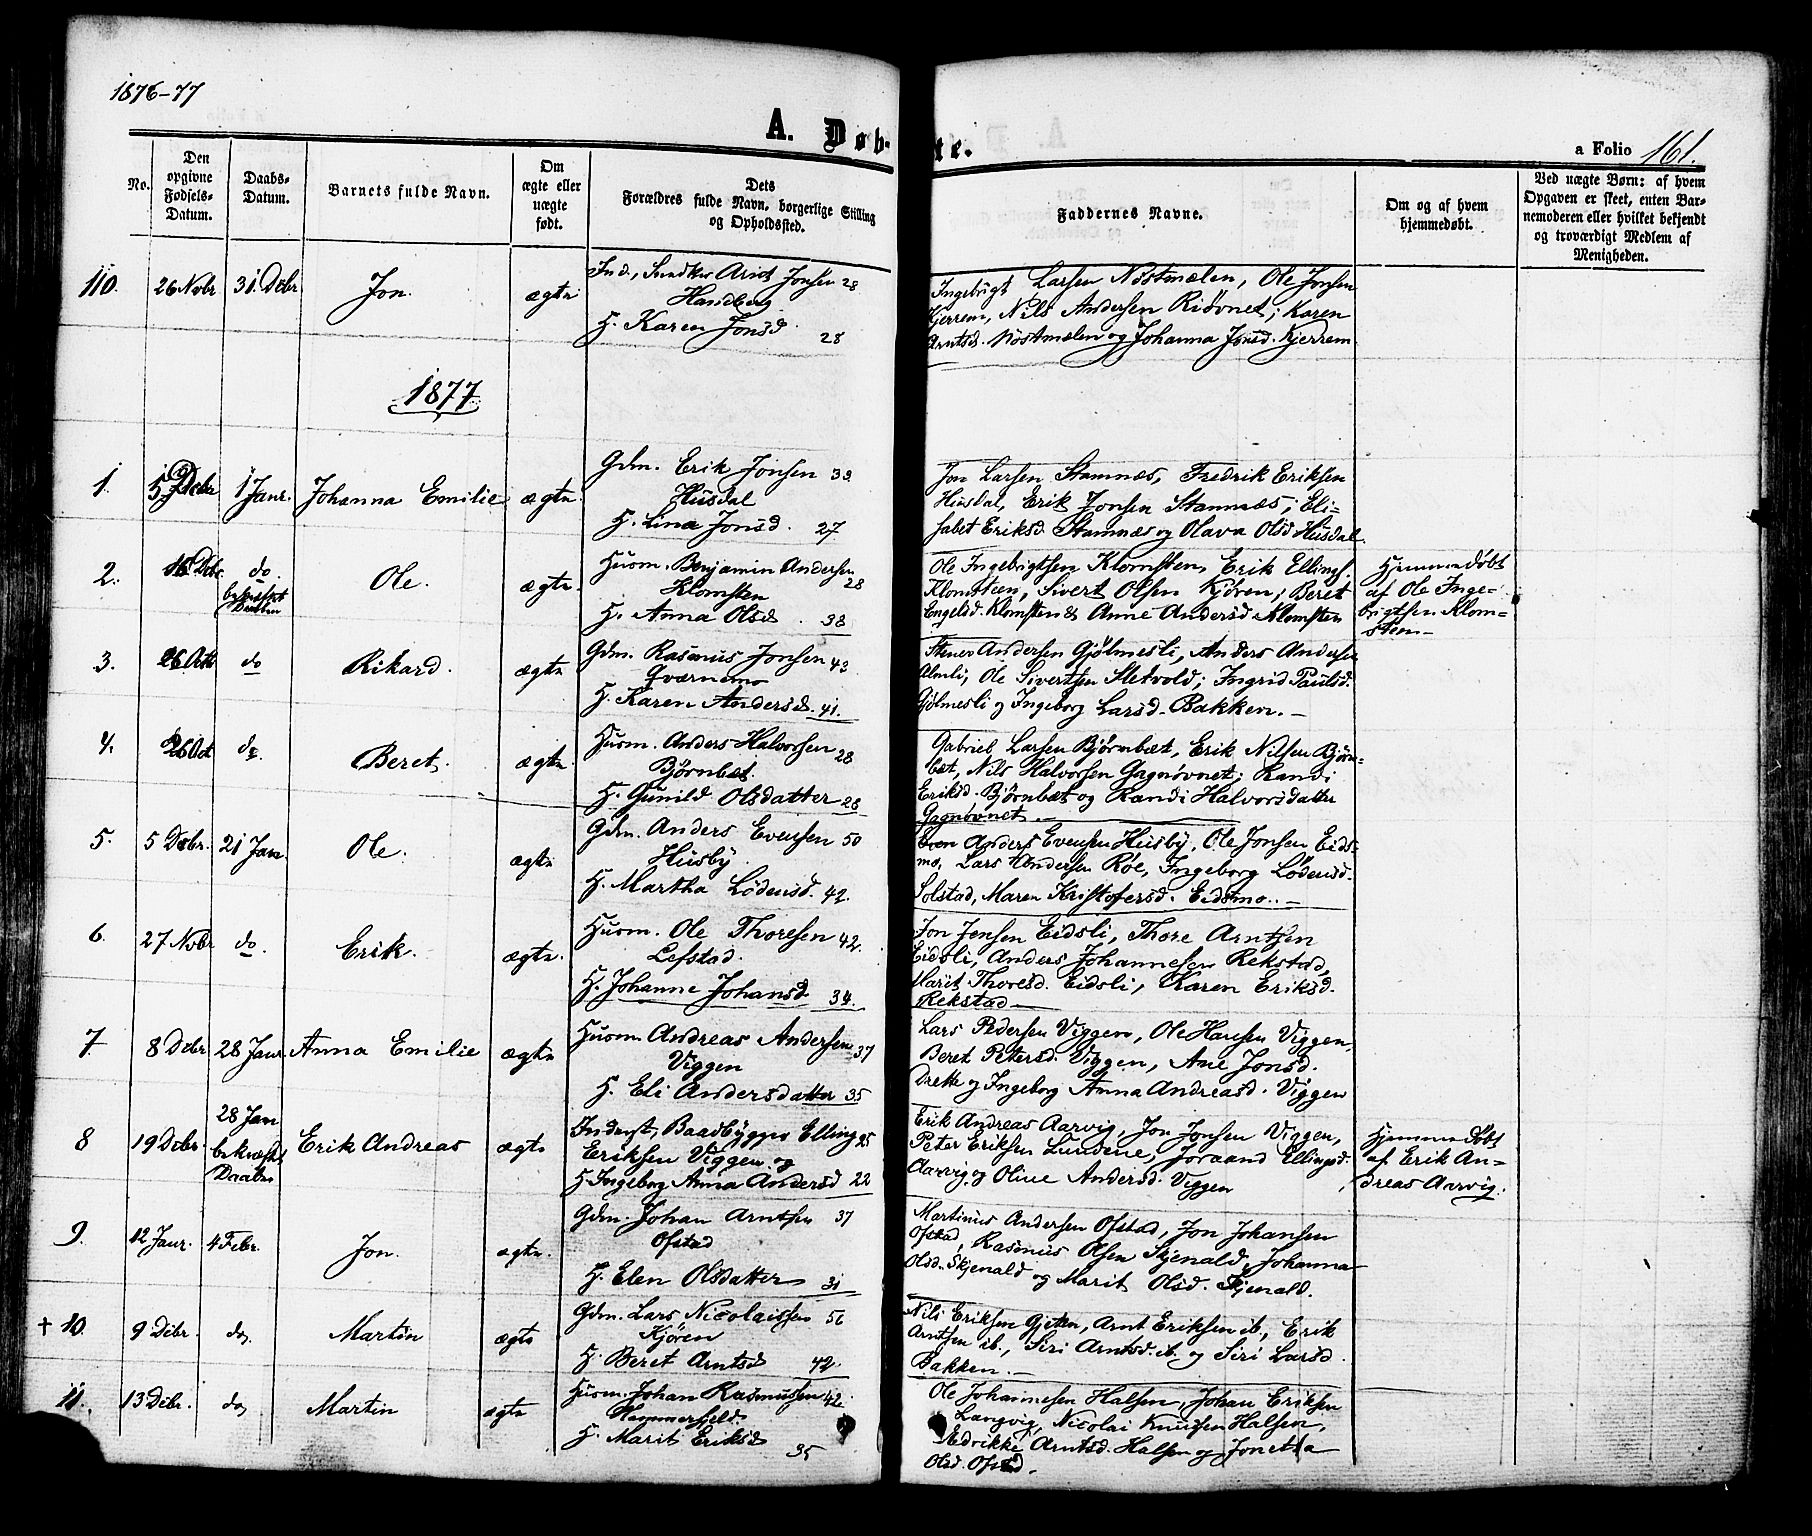 1876-77
A. Døb-
te.
a Folio 161.
No.
Den opgivne Fødsels-Datum.
Daabs-Datum.
Barnets fulde Navn.
Om ægte eller uægte født.
Dets Forældres fulde Navn, borgerlige Stilling og Opholdssted.
Faddernes Navne.
Om og af hvem hjemmedøbt.
Ved uægte Børn: af hvem Opgaven er skeet, enten Barnemoderen eller hvilket bekjendt og troværdigt Medlem af Menigheden.
110. 26 Novbr 31. Debr Jon. ægte
Ind., Arnt Jonsen 28
H. Karen Jonsd. 28
Ingebrigt Larsen Nøstmælen, Ole Jonsen
Kjerrem, Nils Andersen Risøvnet; Karen
Arntsd. Nøstmælen og Johanna Jonsd. Kjerrem
1877
1. Debr 1 Janr. Johanna Emilie ægte
Gdm. Erik Jonsen 33
Husdal
H. Lina Jonsd. 27
Jon Larsen Stamnæs, Fredrik Eriksen
Husdal, Erik Jonsen Stamnæs; Eli-
sabet Eriksd. Stamnæs og Olava Olsd Husdal.
2. Debr. do. bekræftet Daaben Ole. ægte
Husm. Benjamin Andersen 28
Klomsten
H. Anna Olsd. 38
Ole Ingebrigtsen Klomsten, Erik Ellings.
Klomsteen, Sivert Olsen Kjøren; Beret
Engelsd. Klomsten & Anne Andersd. Klomsten
Hjemmedøbt
af Ole Inge-
brigtsen Klom-
sten
3. 26 Okt do Rikard. ægte
Gdm. Rasmus Jonsen 43
Qværnmo
H. Karen Andersd. 41.
Stener Andersen Gjølmesli, Anders Andersen
Almli, Ole Sivertsen Sletvold; Ingrid Paulsd.
Gjølmesli og Ingeborg Larsd. Bakken.
4. 26 Oct do. Beret. ægte
Husm. Anders Halvorsen 28
Bjørnbæt.
H. Gunild Olsdatter 28
Gabriel Larsen Bjørnbæt, Erik Nilsen Bjørn-
bæt, Nils Halvorsen Gagnøvnet; Randi
Eriksd. Bjørnbæt og Randi Halvorsdatter
Gagnøvnet.
5. 5 Debr. 21 Jan. Ole. ægte
Gdm. Anders Evensen 50
Husby.
H. Martha Lødensd. 42.
Even Anders Evensen Husby, Ole Jonsen Eids-
mo, Lars Andersen Roe, Ingeborg Lødensd.
Solstad, Maren Kristofersd. Eidsmo.
6. 27 Novbr do. Erik. ægte.
Husm. Ole Thoresen 42.
Lefstad.
H. Johanne Johansd 34.
Jon Jensen Eidsli, Thore Arntsen
Eidsli, Anders Johannesen Rekstad,
Marit Thoresd. Eidsli, Karen Eriksd.
Rekstad
7. 8 Debr 28 Janr Anna Emilie ægte
Husm Andreas Andersen 37
Viggen
H. Eli Andersdatter 35
Lars Pedersen Viggen, Ole Hansen Viggen,
Beret Petersd. Viggen, Ane Jonsd.
Drette og Ingeborg Anna Andreasd. Viggen
8 19 Debr. 28 Jan bekræftet Daaben Erik Andreas ægte
Inderst, Baadbygger Elling 25
Eriksen Viggen og
H. Ingeborg Anna Andersd 22
Erik Andreas Aarvig, Jon Jonsen Viggen,
Peter Eriksen Lundene, Joraand Ellingsd.
Aarvig og Oline Andersd. Viggen
Hjemmedøbt
af Erik An-
dreas Aarvig.
9. 12 Janr. 4 Febr. Jon. ægte.
Gdm. Johan Arntsen 37
Ofstad
H. Elen Olsdatter 31
Martinus Andersen Ofstad, Jon Johansen
Ofstad, Rasmus Olsen Skjenald, Johanna
Olsd. Skjenald og Marit Olsd. Skjenald.
† 10. 9 Debr. do, Martin ægte
Gdm. Lars Nicolaissen 56
Kjøren
H. Beret Arntsd 42.
Nils Eriksen Gjeten, Arnt Eriksen ib., Erik
Arntsen ib., Siri Arntsd. ib. og Siri Larsd.
Bakken.
11. 13 Debr. do, Martin ægte
Husm. Johan Rasmussen 42
Hammerfjeld
H. Marit Eriksd 35
Ole Johannesen Halsen, Johan Eriksen
Langvig, Nicolai Knutsen Halsen,
Arntsd. Halsen og Jonetta
Olsd. Ofstad.